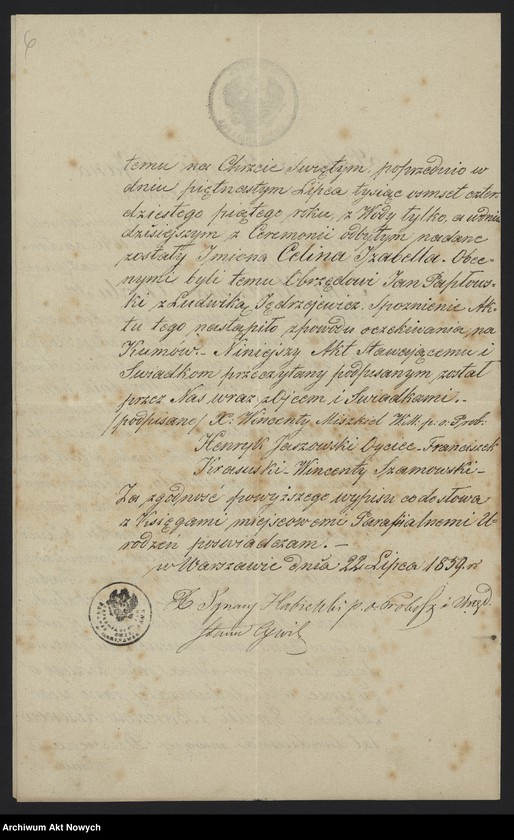 6
temu na Chrzcie Świętym, poprzednio w
dniu piętnastym Lipca tysiąc osmset czter-
dziestego piątego roku, z Wody tylko, a w dniu
dzisiejszym z Ceremonii odbytym nadane
zostały Imiona Celina Izabella. Obec-
nymi byli temu Obrzędowi Jan Papłows-
ki z Ludwiką Jędrzejewicz. Spoznienie Ak-
tu tego nastąpiło z powodu oczekiwania na
Kumow. – Niniejszy Akt Stawającemu i
Swiadkom przeczytany podpisanym został
przez Nas wraz z Ojcem i Swiadkami. –
/podpisano/ X: Wincenty Miszkiel Wik. p. o. Prob:
Henryk Jaszowski Oyciec – Franciszek
Krasuski – Wincenty Szamowski –
Za zgodność powyższego wypisu co do słowa
z Księgami miejscowemi Parafialnemi U-
rodzeń poswiadczam. –
w Warszawie dnia 22 Lipca 1859. r.
X Ignacy p. o. Probosz i Urzęd.
Stanu Cywil
Archiwum Akt Nowych